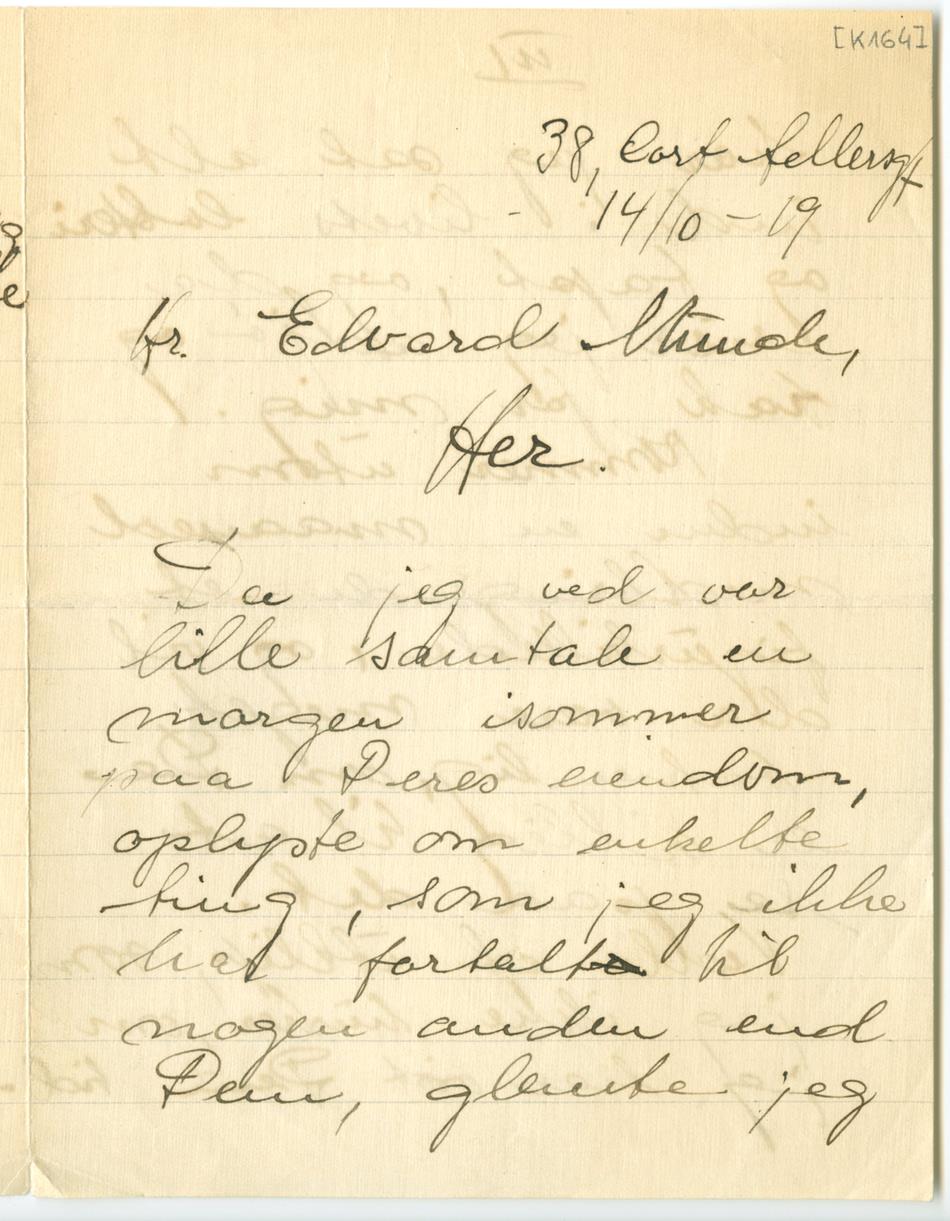 [K164]
38, Cort Adellersgt
14/10 – 19
Hr. Edvard Munch,
Her.
Da jeg ved vor
lille samtale en
morgen isommer
paa Deres eiendom,
oplyste om enkelte
ting, som jeg ikke
har fortalt til
nogen anden end
Dem, glemte jeg